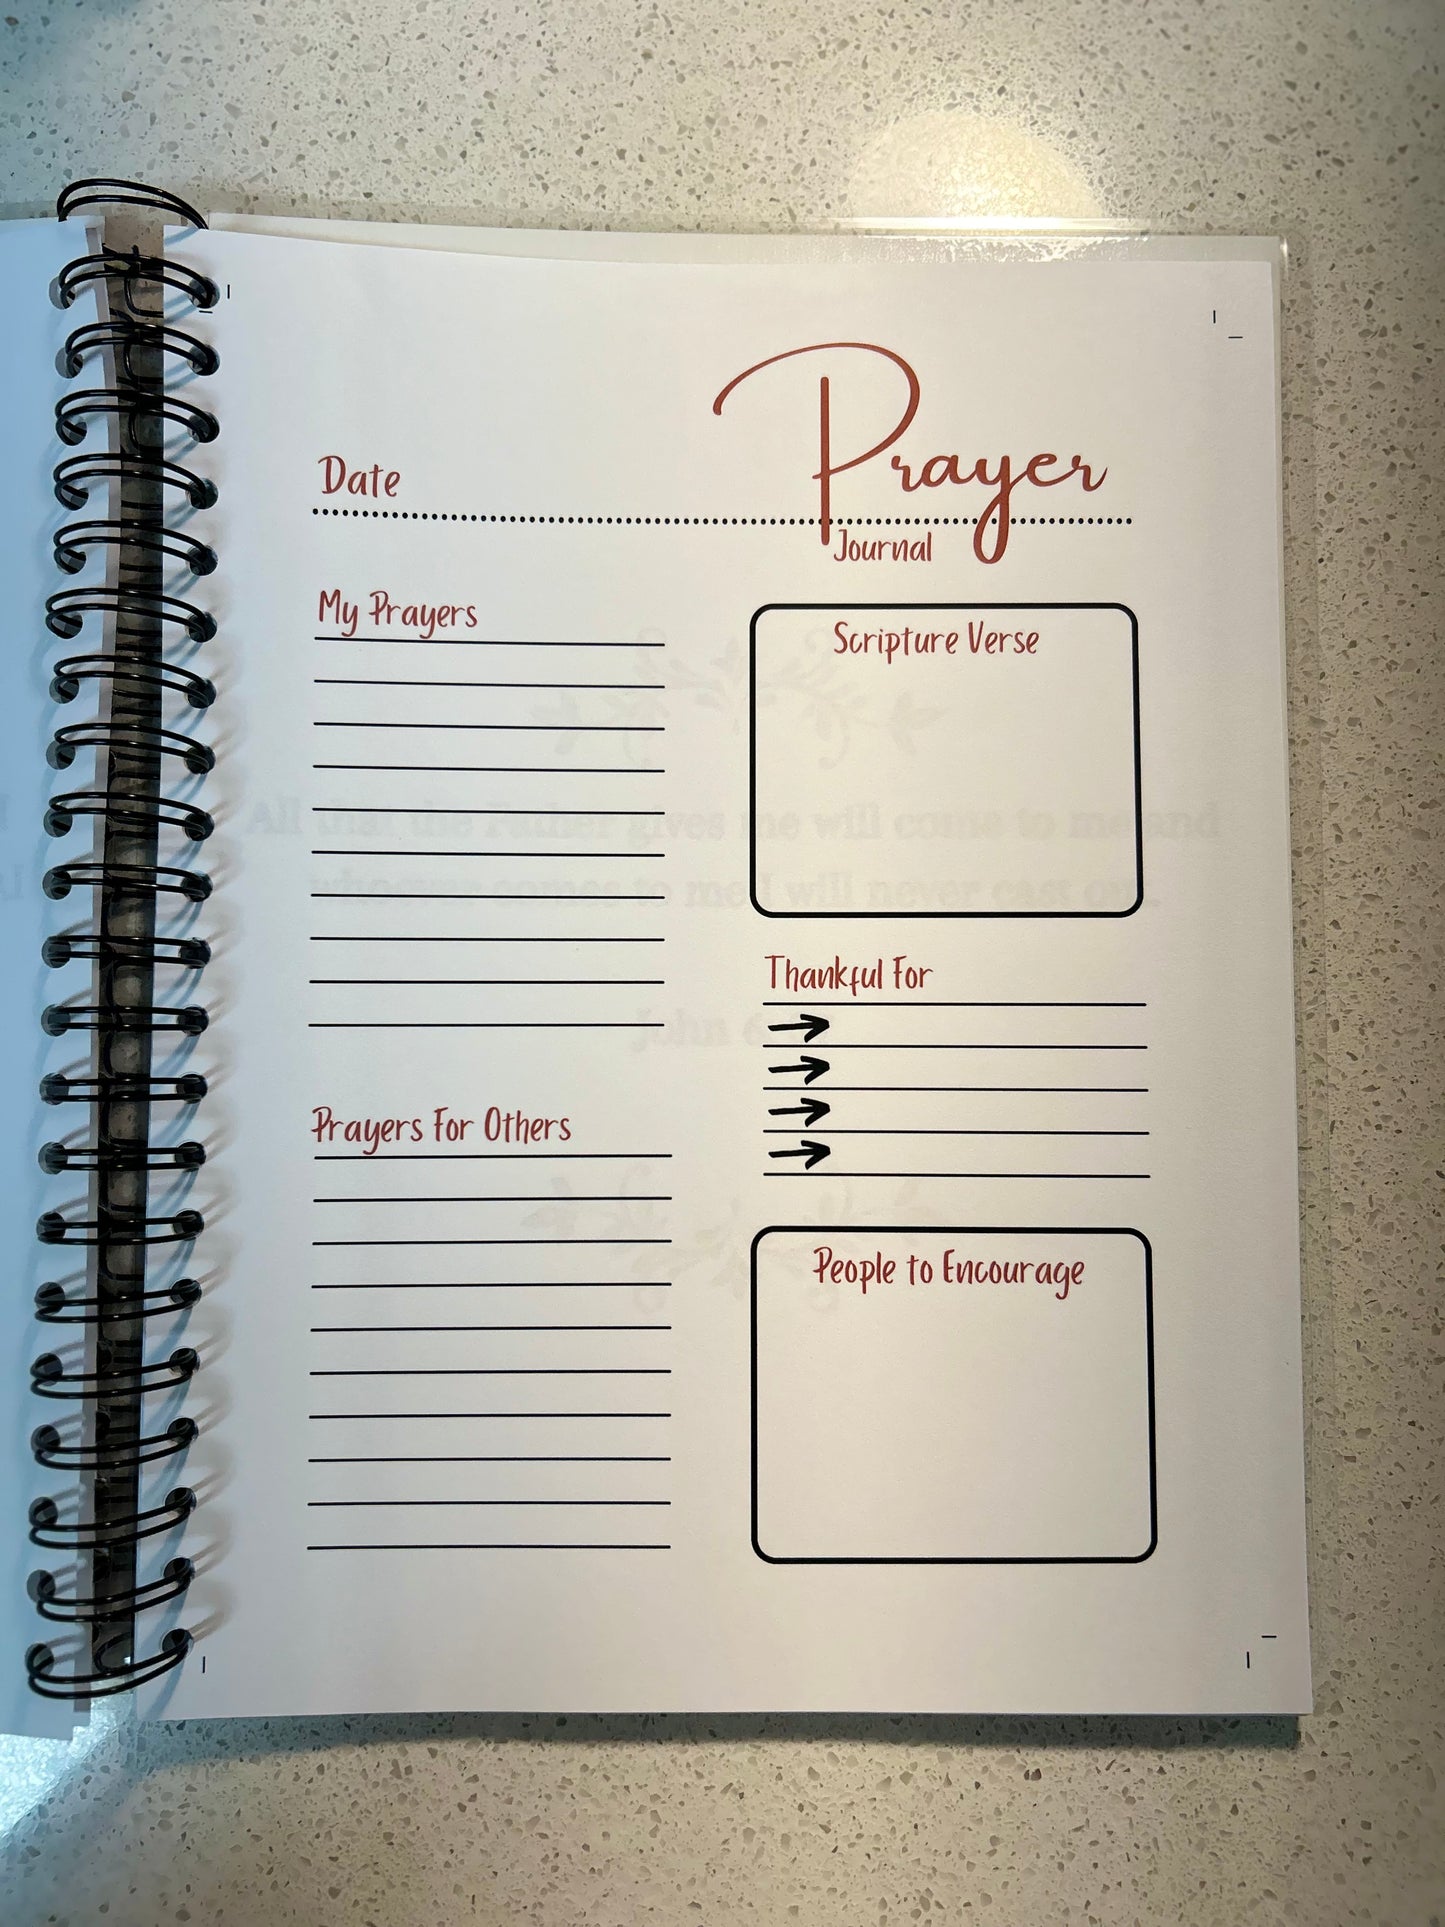 Prayer
Date
Journal
My Prayers
Scripture Verse
All that the Father gives me will come to me and
whoever comes to me I will never cast out.
Thankful For
John 6
Prayers For Others
People to Encourage